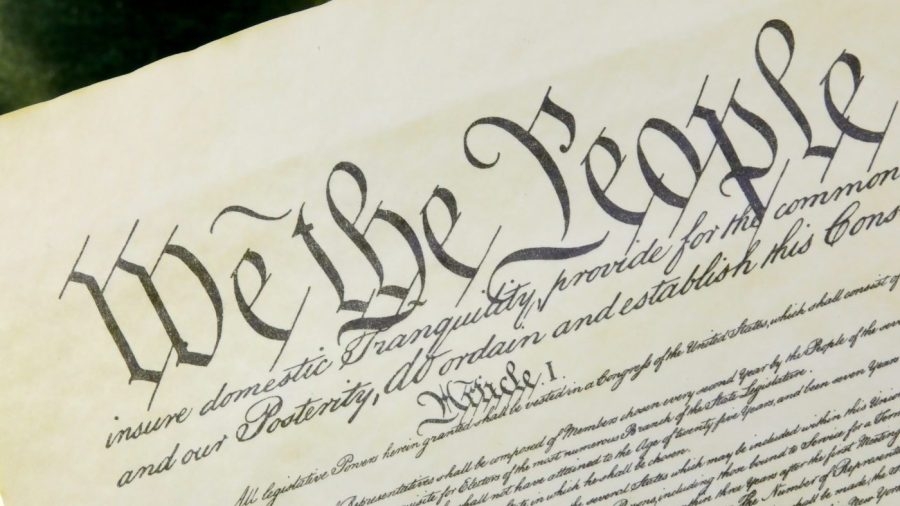 We the People
insure domestic Tranquility, provide for the common
and our Posterity, do ordain and establish this Cons
Article I.
All legislative Powers herein granted shall be vested in a Congress of the United States, which shall consist of
Representatives shall be composed of Members chosen every second Year by the People of the seve
for Electors of the most numerous Branch of the State Legislature.
shall not have attained to the Age of twenty five Years, and been seven Years
in which he shall be chosen.
several States which may be included within this Union
including those bound to Service for a Term
three Years after the first Meeting
The Number of Representa
shall be made, the
New York